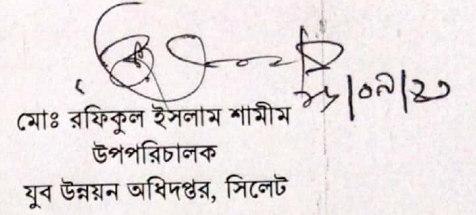 মোঃ রফিকুল ইসলাম শামীম
উপপরিচালক
যুব উন্নয়ন অধিদপ্তর, সিলেট